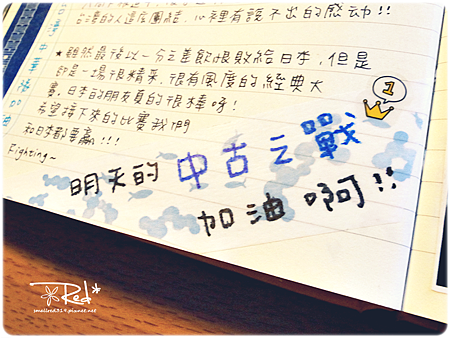 的人這麼團結，心裡有說不出的感动!!
★雖然最後以一分之差飲恨敗給日本，但是
卻是一場很精采，很有風度的經典大
賽，日本的朋友真的很棒呀!
希望接下來的比賽我們
和日本都要贏!!!
Fighting~
明天的 中古之戰
加油啊!!
1
Red*
smallred319.pixnet.net